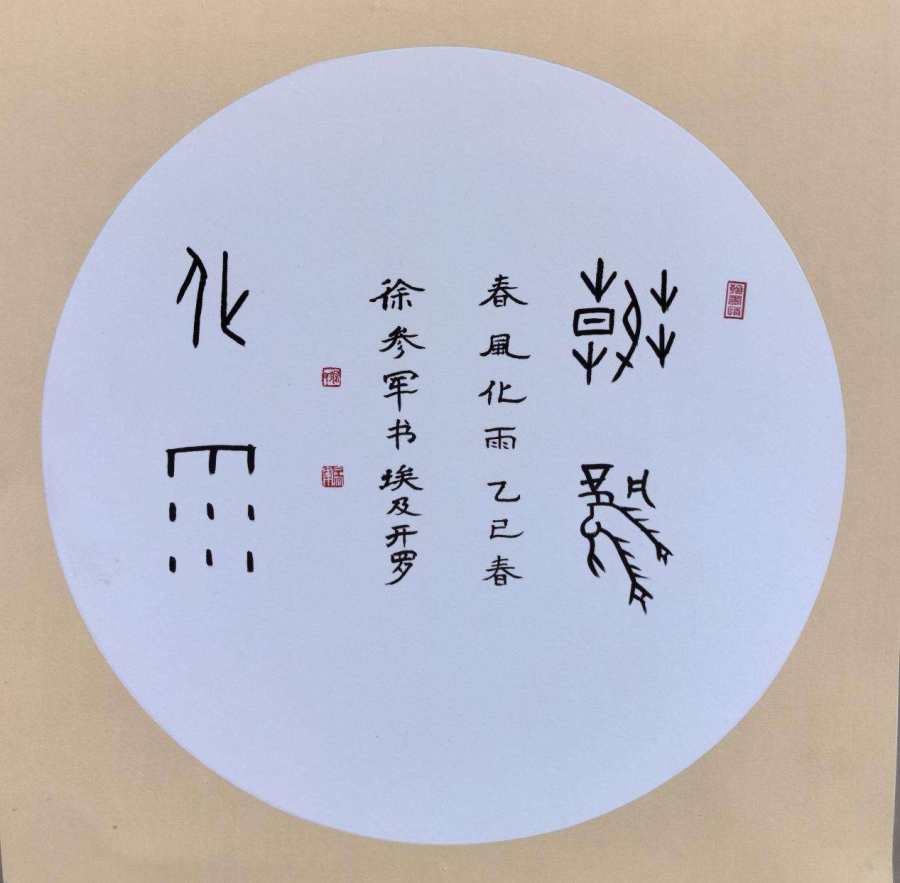 春風
春風化雨乙巳春
徐参军书埃及开罗
化雨